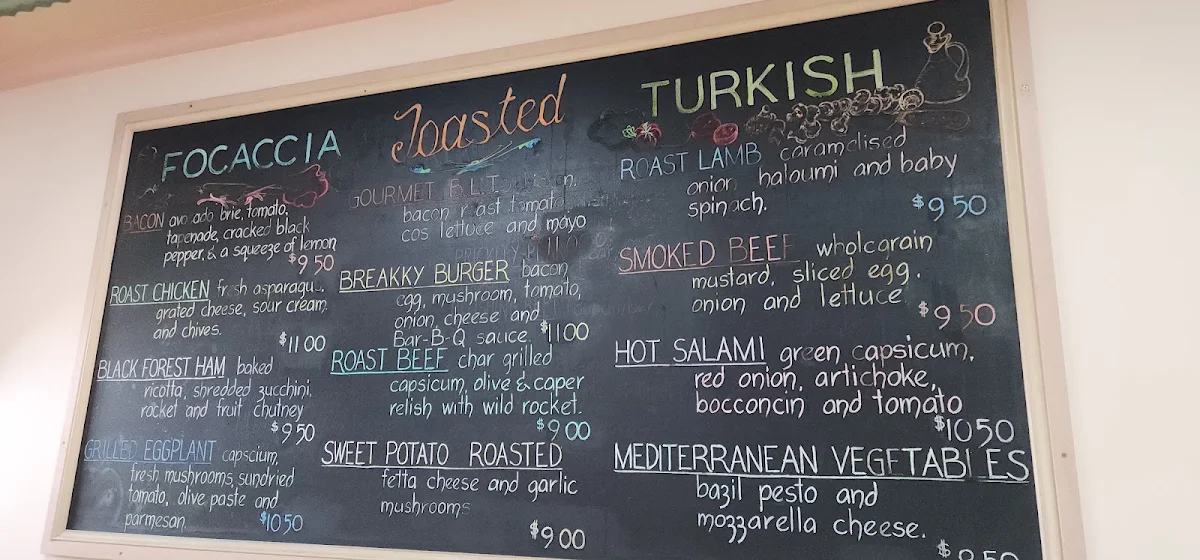 FOCACCIA
BACON avo ado brie, tomato,
tapenade, cracked black
pepper, & a squeeze of lemon
$9 50
ROAST CHICKEN fresh asparagu,
grated cheese, sour cream
and chives.
$11 00
BLACK FOREST HAM baked
ricotta, shredded zucchini,
rocket and fruit chutney
$9 50
GRILLED EGGPLANT capscium,
fresh mushrooms, sundried
tomato, olive paste and
parmesan.
$10 50
Toasted
GOURMET B.L.T.
bacon roast tomato
cos lettuce and mayo
$11 0
BREAKKY BURGER bacon
egg, mushroom, tomato,
onion, cheese and
Bar-B-Q sauce. $11 00
ROAST BEEF char grilled
capsicum, olive & caper
relish with wild rocket.
$9 00
SWEET POTATO ROASTED
fetta cheese and garlic
mushrooms
$9 00
TURKISH
ROAST LAMB caramelised
onion haloumi and baby
spinach.
$9 50
SMOKED BEEF wholegrain
mustard, sliced egg.
onion and lettuce
$9 50
HOT SALAMI green capsicum,
red onion, artichoke,
bocconcin and tomato
$10 50
MEDITERRANEAN VEGETABLES
bazil pesto and
mozzarella cheese.